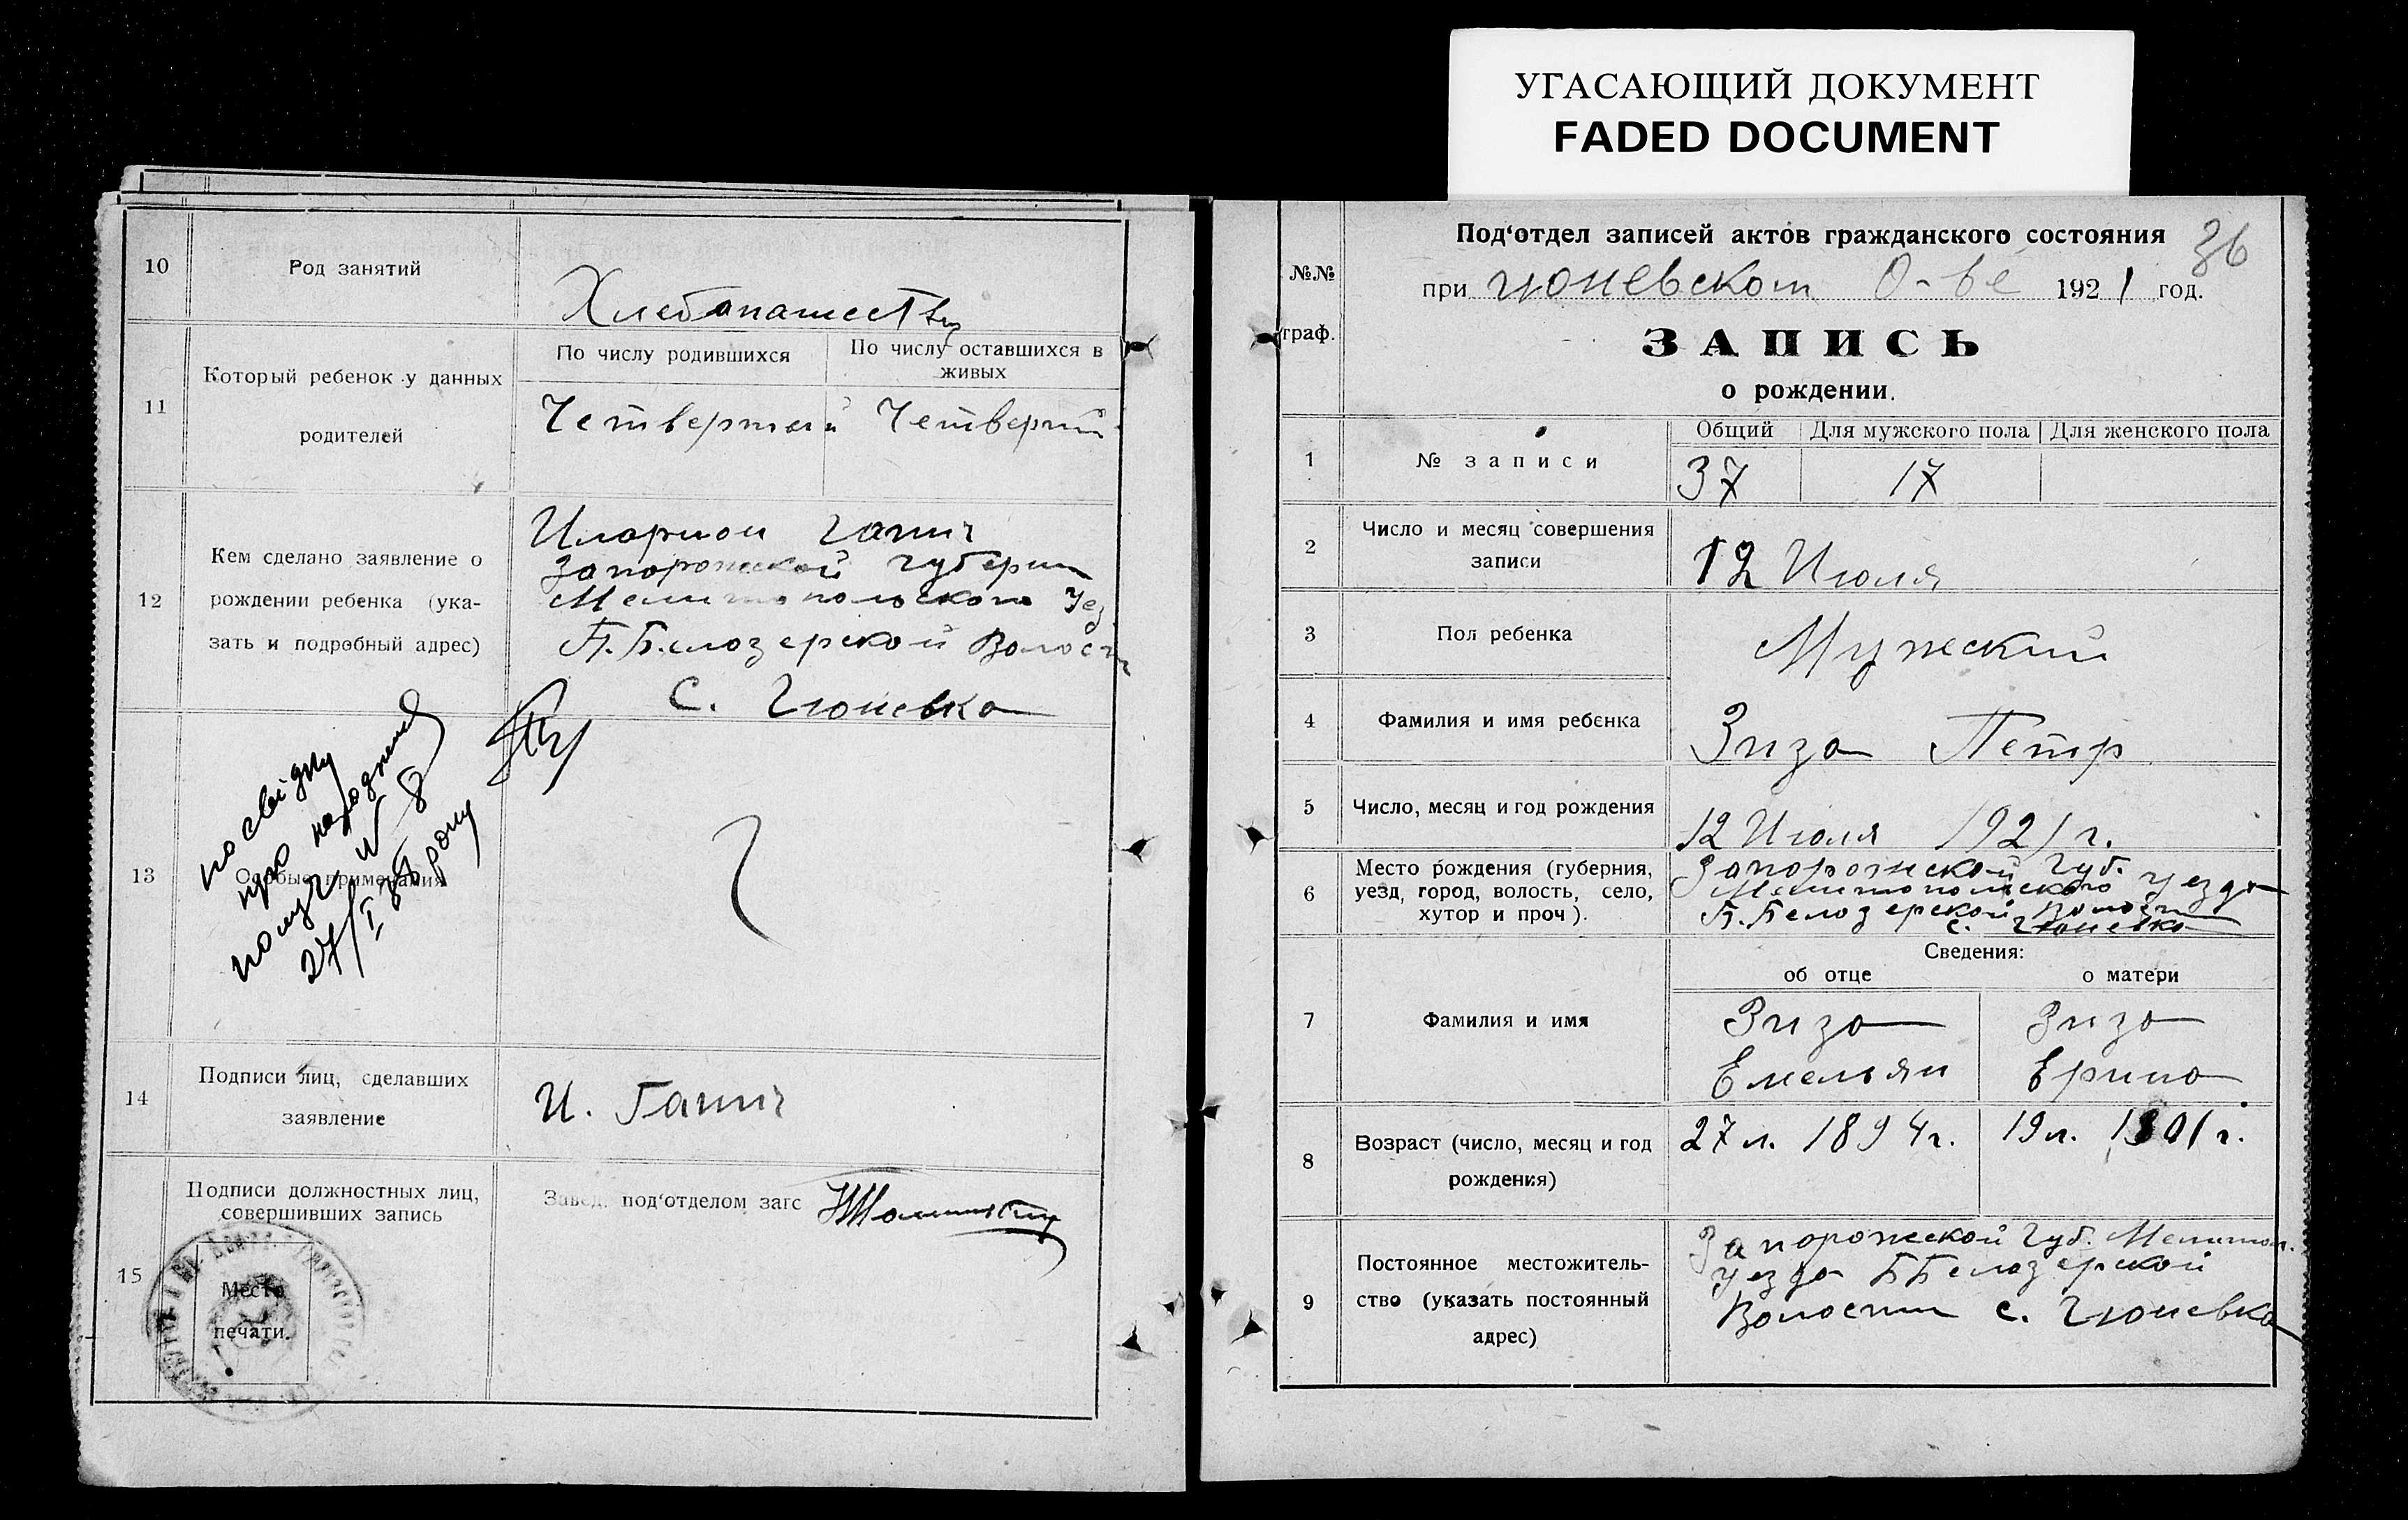 УГАСАЮЩИЙ ДОКУМЕНТ
FADED DOCUMENT
10 Род занятий
Хлебопашество
11 Который ребенок у данных родителей
По числу родившихся
По числу оставшихся в живых
Четвертый
Четверт
12 Кем сделано заявление о
рождении ребенка (ука-
зать и подробный адрес)
Иларион
Запорожской губерни
Мелитопольского Уез
Б. Белозерской Волости
С. Гюневка
13 Особые примечания
посвідку
про народження
№ 8
27/I 38 року
14 Подписи лиц, сделавших
заявление
И.
15 Подписи должностных лиц,
совершивших запись
Завед. под'отделом загс
Место
печати.
36
№№
граф.
Под'отдел записей актов гражданского состояния
при Гюневском О-ве 1921 год.
ЗАПИСЬ
о рождении.
Общий Для мужского пола Для женского пола
1 № записи 37 17
2 Число и месяц совершения
записи
12 Июля
3 Пол ребенка Мужский
4 Фамилия и имя ребенка Зизо Петр
5 Число, месяц и год рождения 12 Июля 1921 г.
6 Место рождения (губерния,
уезд, город, волость, село,
хутор и проч).
Запорожской Губ.
Мелитопольского уезда
Б. Белозерской Волости
с. Гюневка
Сведения:
об отце о матери
7 Фамилия и имя
Зизо Зизо
Емельян Ерино
8 Возраст (число, месяц и год
рождения)
27 л. 1894 г. 19 л. 1901 г.
9 Постоянное местожитель-
ство (указать постоянный
адрес)
Запорожской Губ. Мелитоп.
уезда Б Белозерской
Волости с. Гюневка